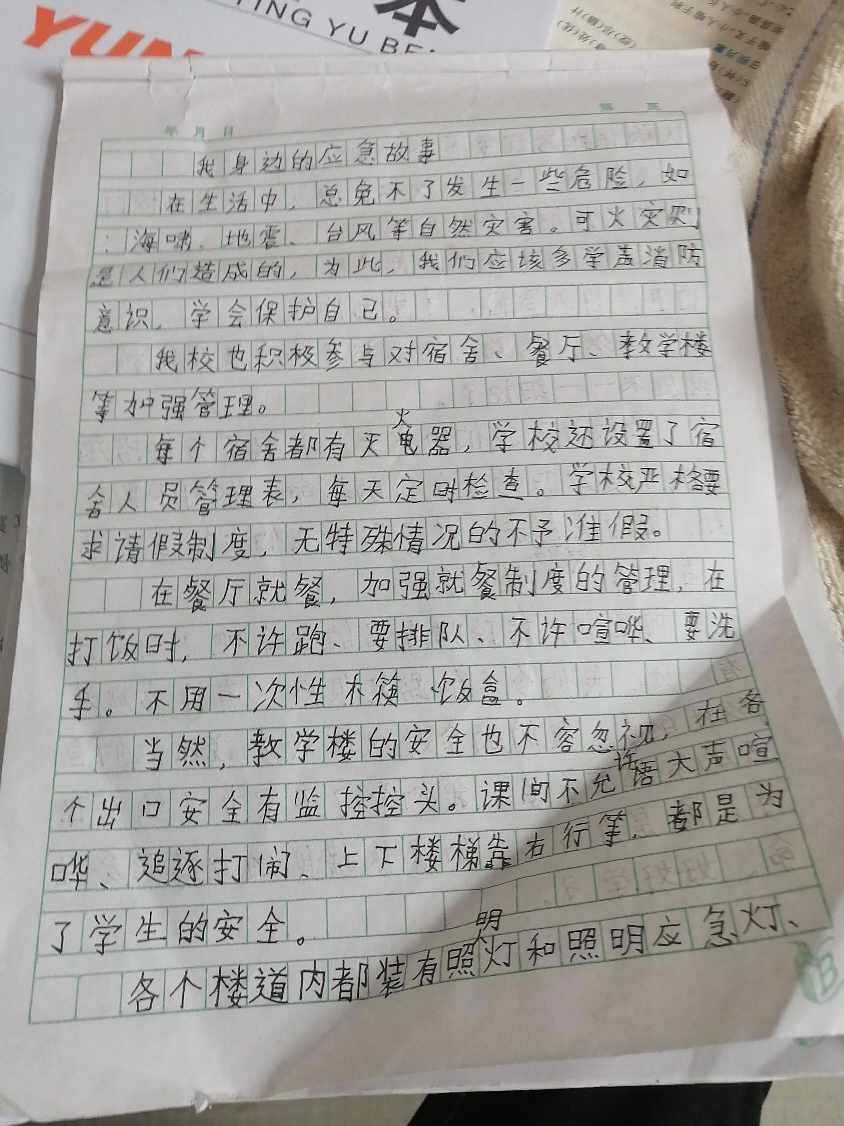 本
TING YU BE
YUN
年 月 日
第 页
我身边的应急故事
在生活中，总免不了发生一些危险，如
：海啸、地震、台风等自然灾害。可火灾则
是人们造成的，为此，我们应该多学盖消防
意识，学会保护自己。
我校也积极参与对宿舍、餐厅、教学楼
等加强管理。
火
每个宿舍都有灭电器，学校还设置了宿
舍人员管理表，每天定时检查。学校严格要
求请假制度，无特殊情况的不予准假。
在餐厅就餐，加强就餐制度的管理，在
打饭时，不许跑、要排队、不许喧哗、要洗
手。不用一次性木筷 饭盒。
当然，教学楼的安全也不容忽视，在各
个出口安全有监控控头。课间不允许语大声喧
哗、追逐打闹、上下楼梯靠右行等，都是为
了学生的安全。
明
各个楼道内都装有照灯和照明应急灯、